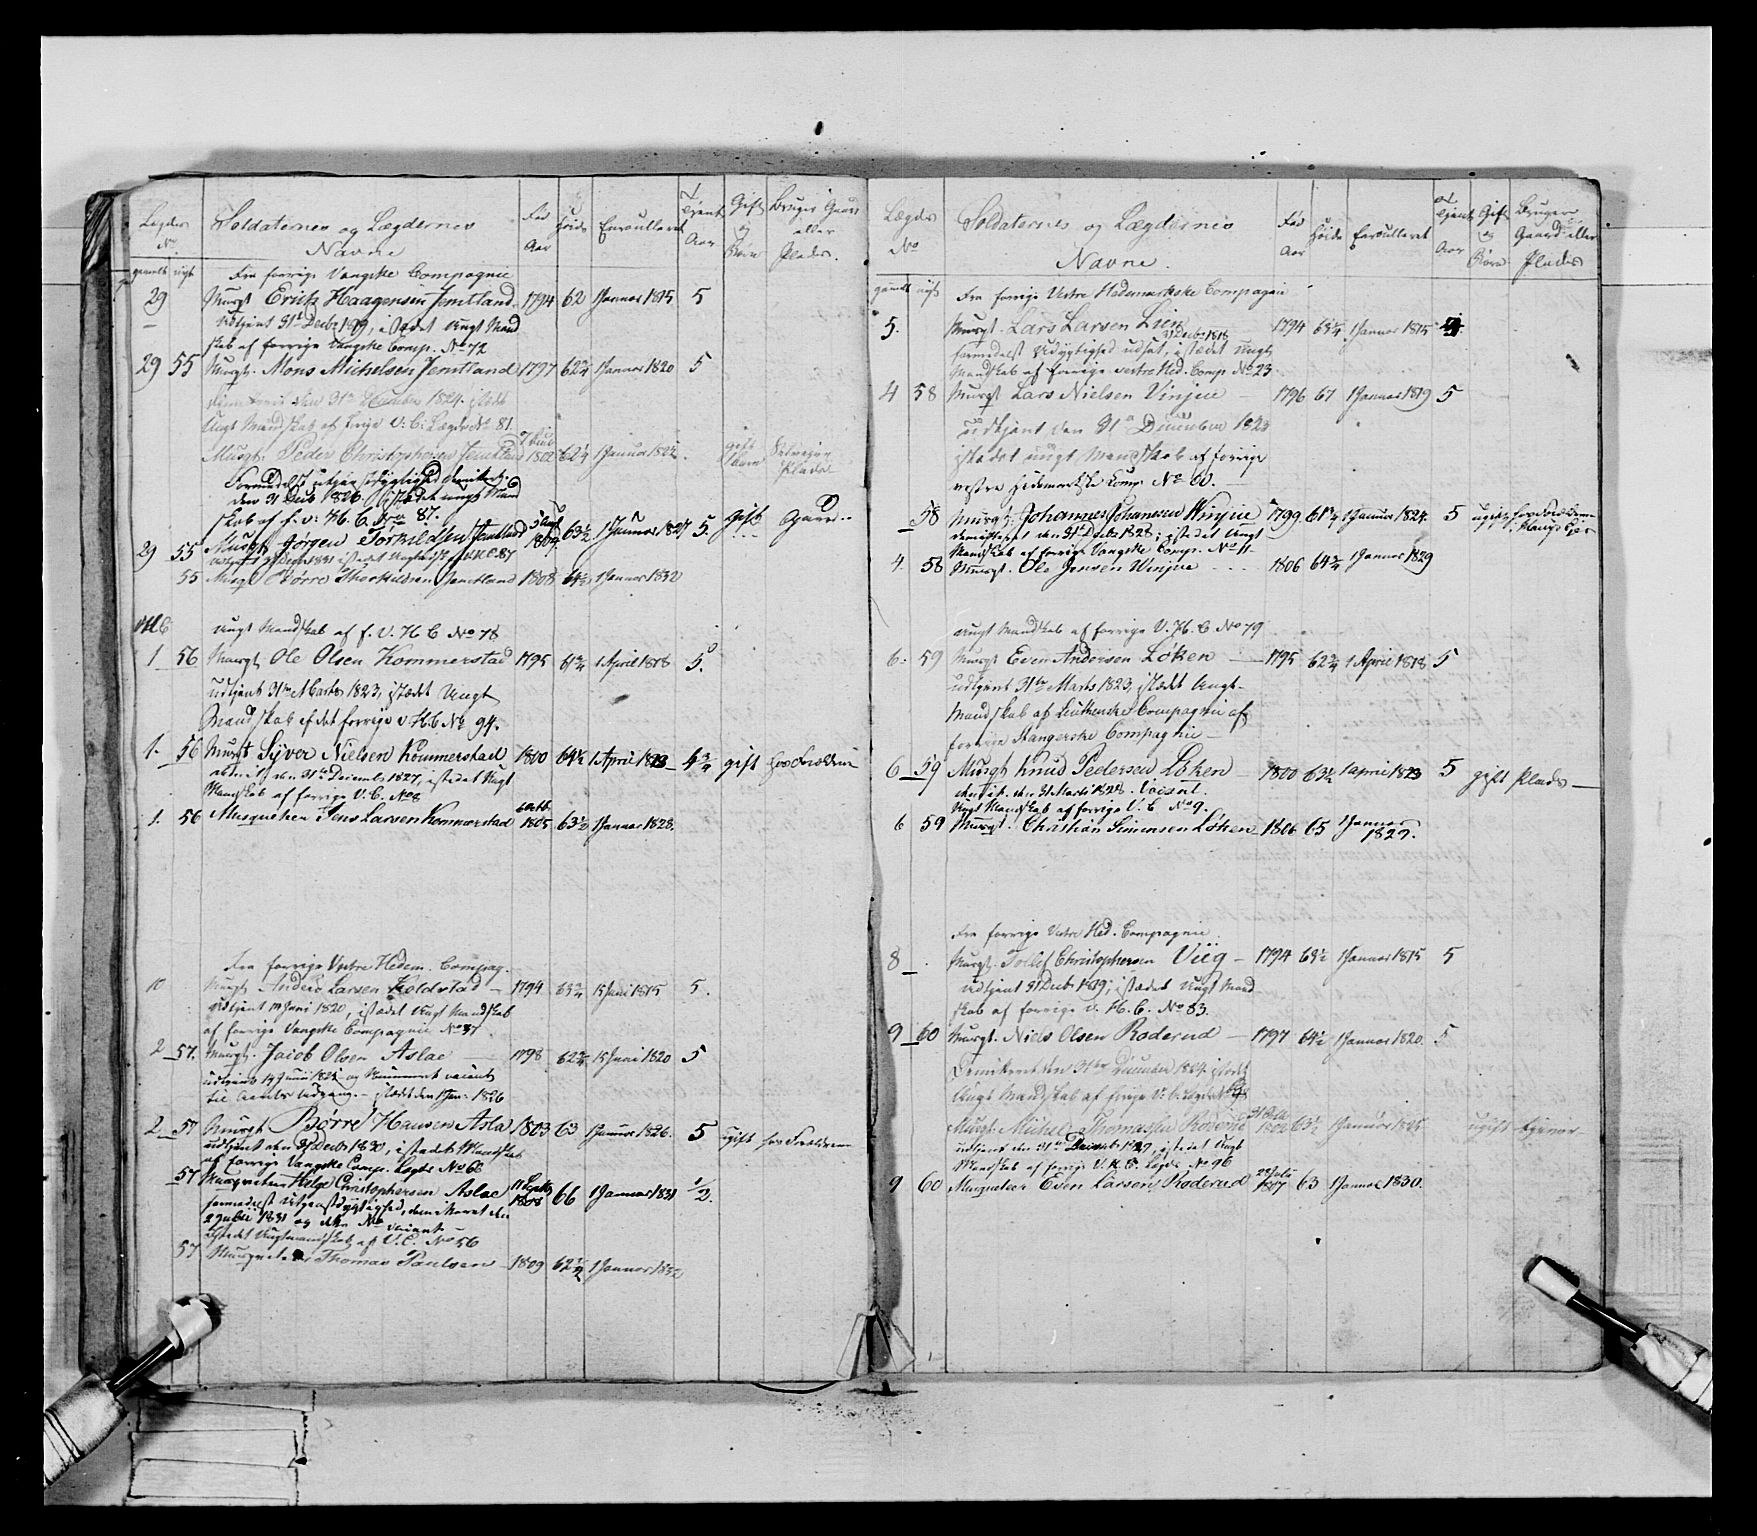 Lægds No Soldaternes og Lægdernes Navne Fød Aar Høide Enroulleret Tjent Aar Gift og Børn Bruger Gaard eller Plads.
gamelt nyt
Fra forrige Vangske Compagnie
29 Musqt Erich Haagensen Jemtland 1794 62 1 Januar 1815 5
udtjent 31t Decbr 1819, istædet Ungt Mand
skab af forrige Vangske Comp. No 72
29 55 Musqt. Mons Michelsen Jemtland 1797 62¾ 1 Januar 1820 5
den 31te December 1824. istædet
Ungt Mandskab af forrige V: C: Lægds No 81.
Musqt: Peder Christophersen Jemtland 1802 62¼ 1 Januar 182 gift Plads
den 31 Decbr 1826. istædet ungt Mand
skab af f. v: H. C. No 87.
29 55 Musqt Jørgen Torkildsen Jemtland 1804 63½ 1 Januar 1827 5. Gift Gaard
55 Musqt Børre Thorkildsen Jemtland 1808 64½ 1 Januar 1832
Ungt Mandskab af f. V. H C No 78
1 56 Musqt Ole Olsen Kommerstad 1795 61¾ 1 April 1818 5.
udtjent 31te Marts 1823, istædet Ungt
Mandskab af det forrige v. H. C No 94.
1. 56 Musqt Syver Nielsen Kommerstad 1800 64½ 1 April 1823 4¾ gift hos Forældrene
den 31te Decemb 1827, istædet Ungt
Mandskab af forrige V. C. No 8
1. 56 Musqueteer Jens Larsen Kommerstad 6 Octb 1805 63½ 1 Januar 1828.
Fra forrige Vestre Hedem. Compag.
10 Musqt Anders Larsen Koldstad 1794 63¾ 15 Juni 1815 5.
udtjent 14 Juni 1820, istædet Ungt Mandskab
af forrige Vangske Compagnie No 87
2 57. Musqt. Jacob Olsen Aslae 1798 62¾ 15 Juni 1820 5
udtjent 14 Junii 182 og Nummeret vacant
til Aarets Udgang. istædet den 1 Jan. 1826
2 57 Musqt Børre Hansen Asla 1803 63 1 Januar 1826. 5 ugift hos Forældrene
udtjent den 31 Decbr 1830, istædet Mandskab
af forrige Vangske Comp. Lægds No 68
57 Musqueteer Helge Christophersen Aslae 17 Septbr 1808 66 1 Januar 1831 ½.
formedelst Utjenstdygtighed, demiteret den
1831 og No vacant
istedet Ungtmandskab af V. C. No 56
57 Musqueteer Thomas Paulsen 1809 62½ 1 Januar 1832
Lægds No Soldaternes og Lægdernes Navne. Fød Aar Høide Enroulleret Tjent Aar Gift og Børn Bruger Gaard eller Plads
gamelt nyt
Fra forrige Vestre Hedemarkske Compagnie
5. Musqt. Lars Larsen Lien 1794 63¼ 1 Januar 1815
31 Decbr 1818
formedelst Udygtighed udsat, istædet Ungt
Mandskab af forrige vestre Hed. Comp. No 23.
4 58 Musqt Lars Nielsen Vinjue 1796 67 1 Januar 1819 5
udtjent den 31te December 1823
istædet ungt Mandskab af forrige
vestre Hedemarkske Comp. No 60.
58 Musqt: Johannes Johanesen Winjue 1799. 61¾ 1 Januar 1824. 5 ugift
den 31te Decbr 1828; istedet Ungt
Mandskab af forrige Vangske Comp. No 11
4. 58 Musqt. Ole Jensen Winjue 1806 64¾ 1 Januar 1829
Ungt Mandskab af forrige V. H. C. No 79
6. 59 Musqt Even Andersen Løken 1795 62¾ 1 April 1818 5
udtjent 31te Marts 1823, istædet Ungt
Mandskab af Leuthenske Compagnie af
forrige Stangeske Compagnie
6 59 Musqt Knud Pedersen Løken 1800 63½ 1 April 1823 5 gift Plads
den 31 Marti 1828. Vacant.
Ungt Mandskab af forrige V. C No 9.
6 59 Musqt. Christian Simensen Løken 1806 65 1 Januar 1829.
Fra forrige Vestre Hed. Compagnie
8 Musqt. Tollef Christophersen Viig 1794 63½ 1 Januar 1815 5
udtjent 31 Decbr 1819; istædet Ungt Mand
skab af forrige v. H. C. No 83.
9 60 Musqt. Niels Olsen Roderud 1797 64½ 1 Januar 1820. 5
Demiteret den 31te December 1824. istædet
Ungt Mandskab af forrige V: C. Lægds No
Musqt. Michel Thomassen Roderud 63½ 1 Januar 1825 ugift tjener
udtjent den 31te Decemb 1829, istedet Ungt
Mandskab af forrige V. H. C. Lægds No 96
9 60 Musqueteer Even Larsen Roderud 22 July 1807 63 1 Januar 1830.